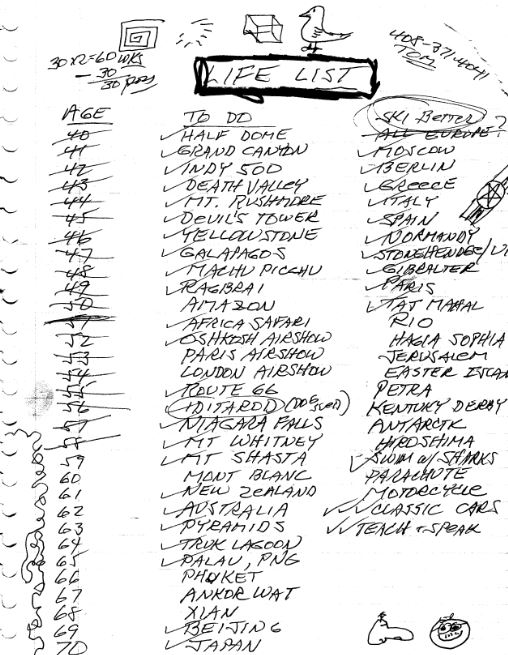 30x2=60 WKS
- 30
30 
408-371-4041
TOM
LIFE LIST
AGE
40
41
42
43
44
45
46
47
48
49
50
51
52
53
54
55
56
57
58
59
60
61
62
63
64
65
66
67
68
69
70
TO DO
✓HALF DOME
✓GRAND CANYON
✓INDY 500
✓DEATH VALLEY
✓MT. RUSHMORE
✓DEVIL'S TOWER
✓YELLOWSTONE
✓GALAPAGOS
✓MACHU PICCHU
✓RAGBRAI
AMAZON
✓AFRICA SAFARI
✓OSHKOSH AIRSHOW
PARIS AIRSHOW
LONDON AIRSHOW
✓ROUTE 66
IDITAROD (DOG SLED)
✓NIAGARA FALLS
✓MT WHITNEY
✓MT SHASTA
MONT BLANC
✓NEW ZEALAND
✓AUSTRALIA
✓PYRAMIDS
✓TRUK LAGOON
✓PALAU, PNG
PHUKET
ANKOR WAT
XIAN
✓BEIJING
✓JAPAN
SKI BETTER
ALL EUROPE?
✓MOSCOW
✓BERLIN
✓GREECE
✓ITALY
SPAIN
✓NORMANDY
✓STONEHENGE/
✓GIBRALTER
✓PARIS
✓TAJ MAHAL
RIO
HAGIA SOPHIA
JERUSALEM
EASTER ISLAN
PETRA
KENTUKY DERBY
ANTARCTK
HIROSHIMA
✓SWIM w/ SHARKS
PARACHUTE
MOTORCYCLE
✓✓CLASSIC CARS
✓✓TEACH + SPEAK